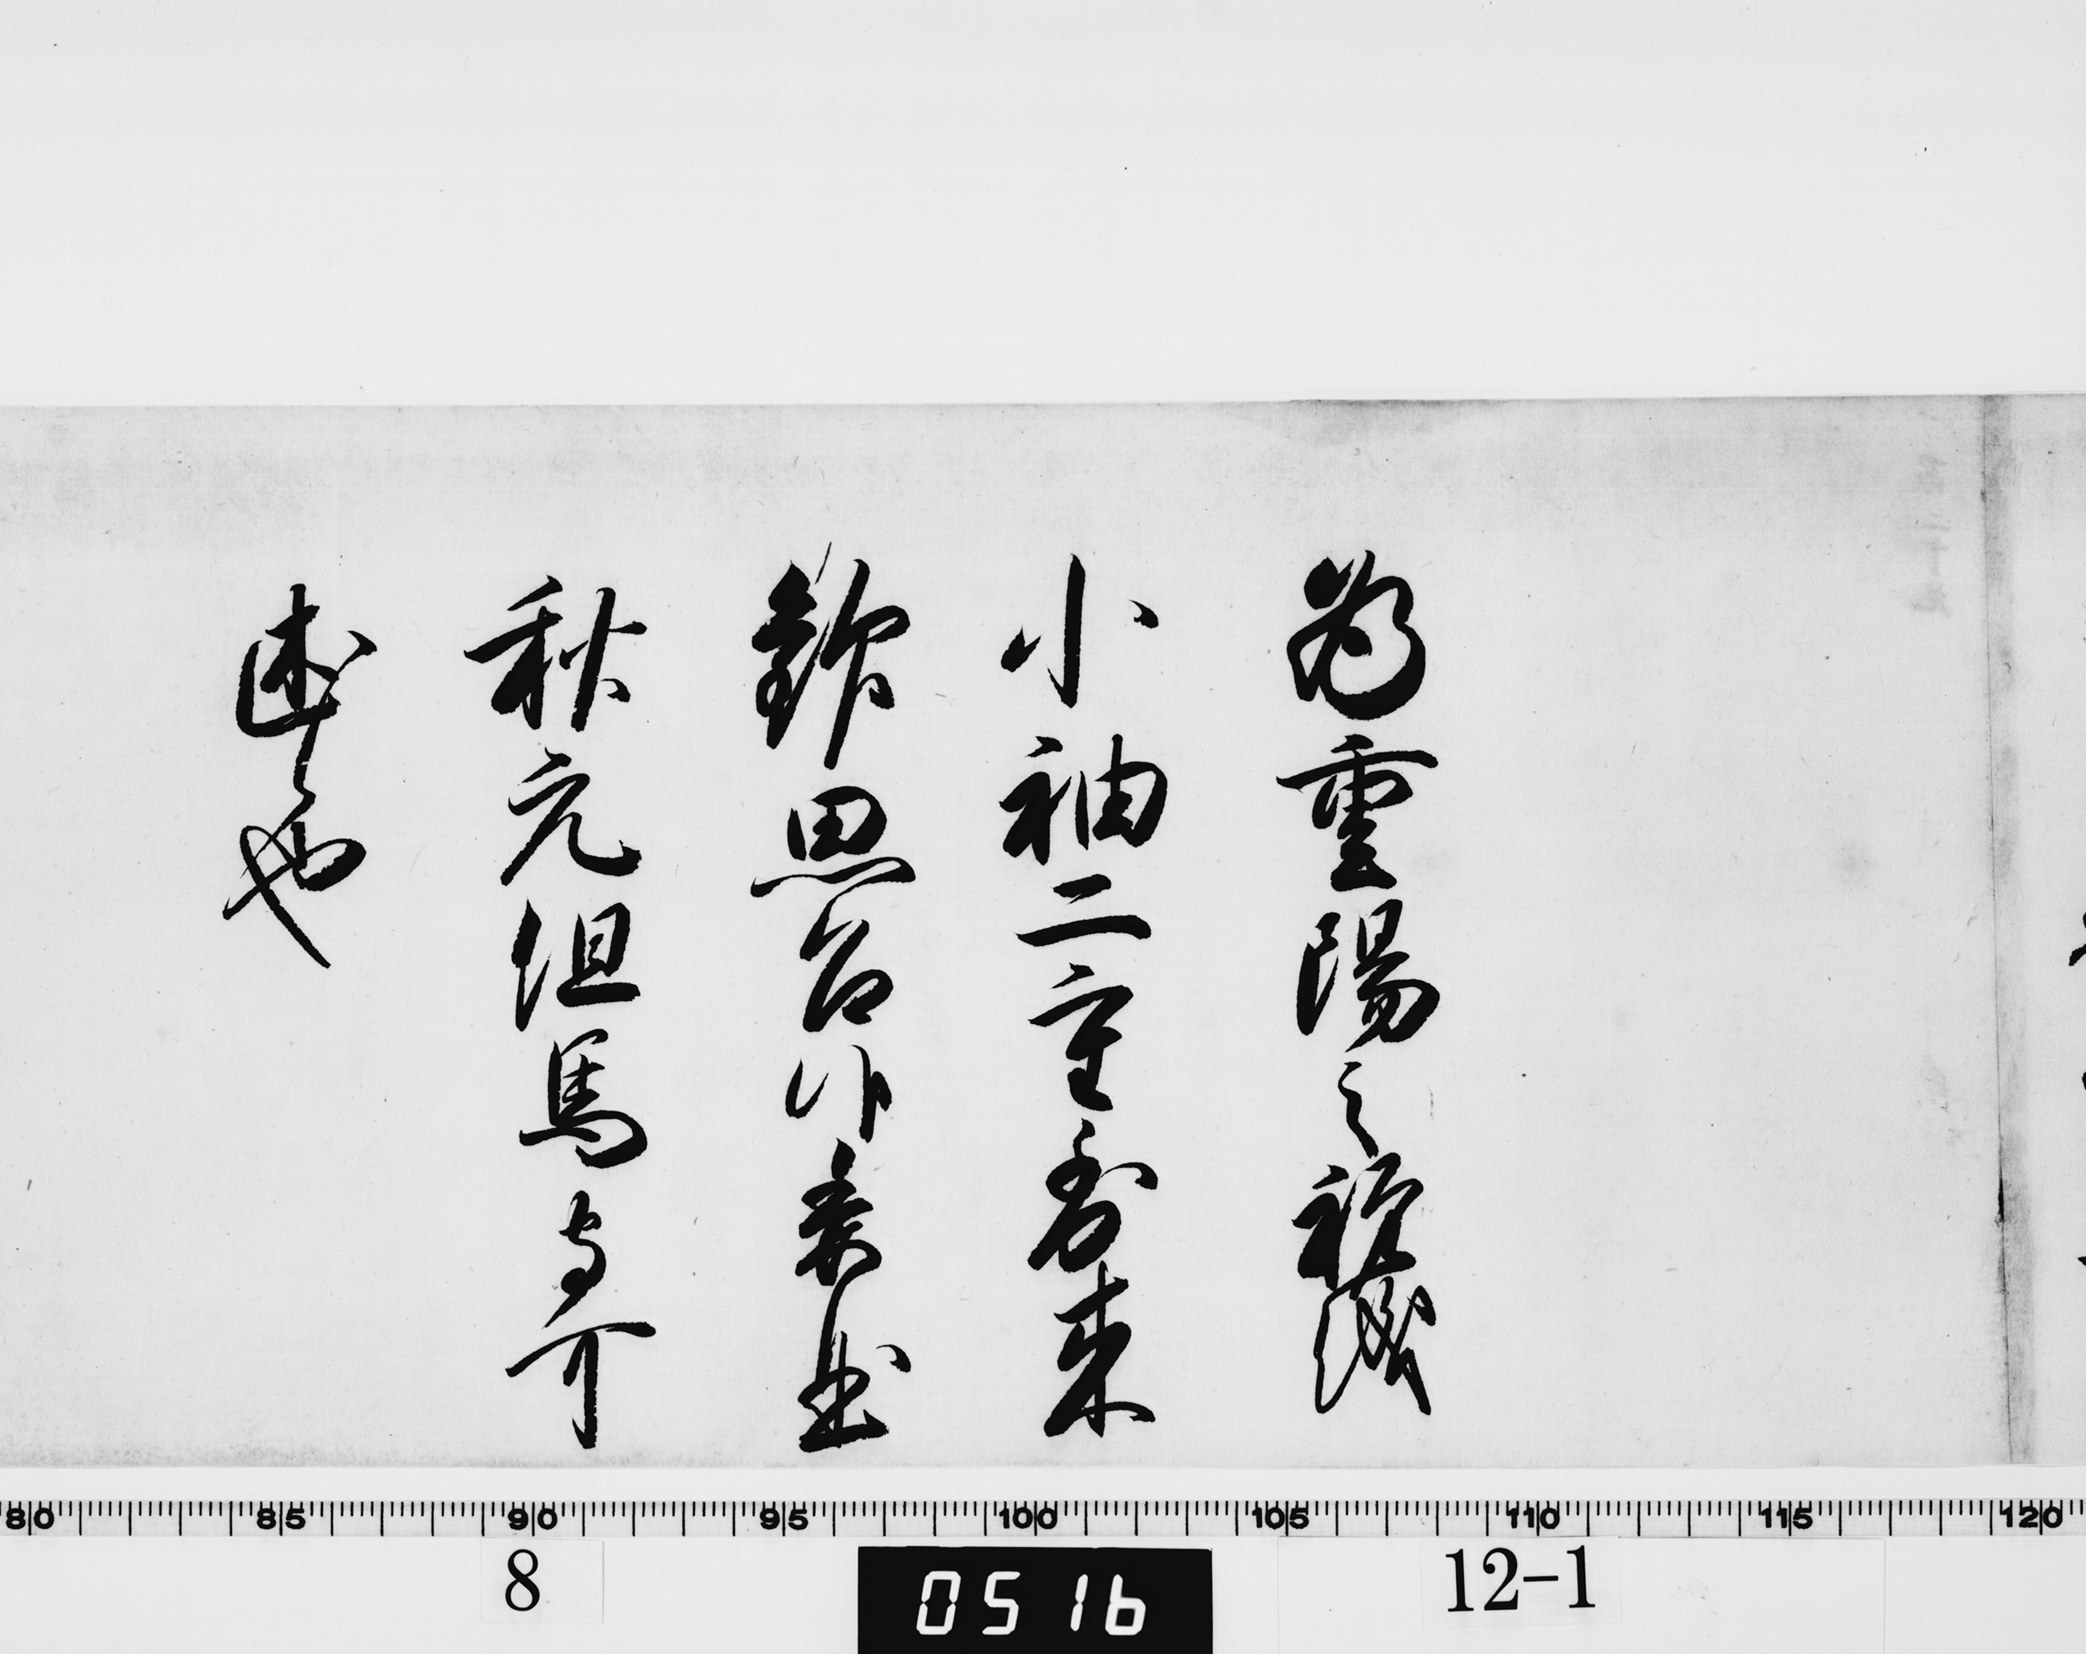 為重陽之祝儀
小袖二重到来
歓思召候委曲
秋元但馬守可
述候也
80 85 90 95 100 105 110 115 120
8 0516 12-1